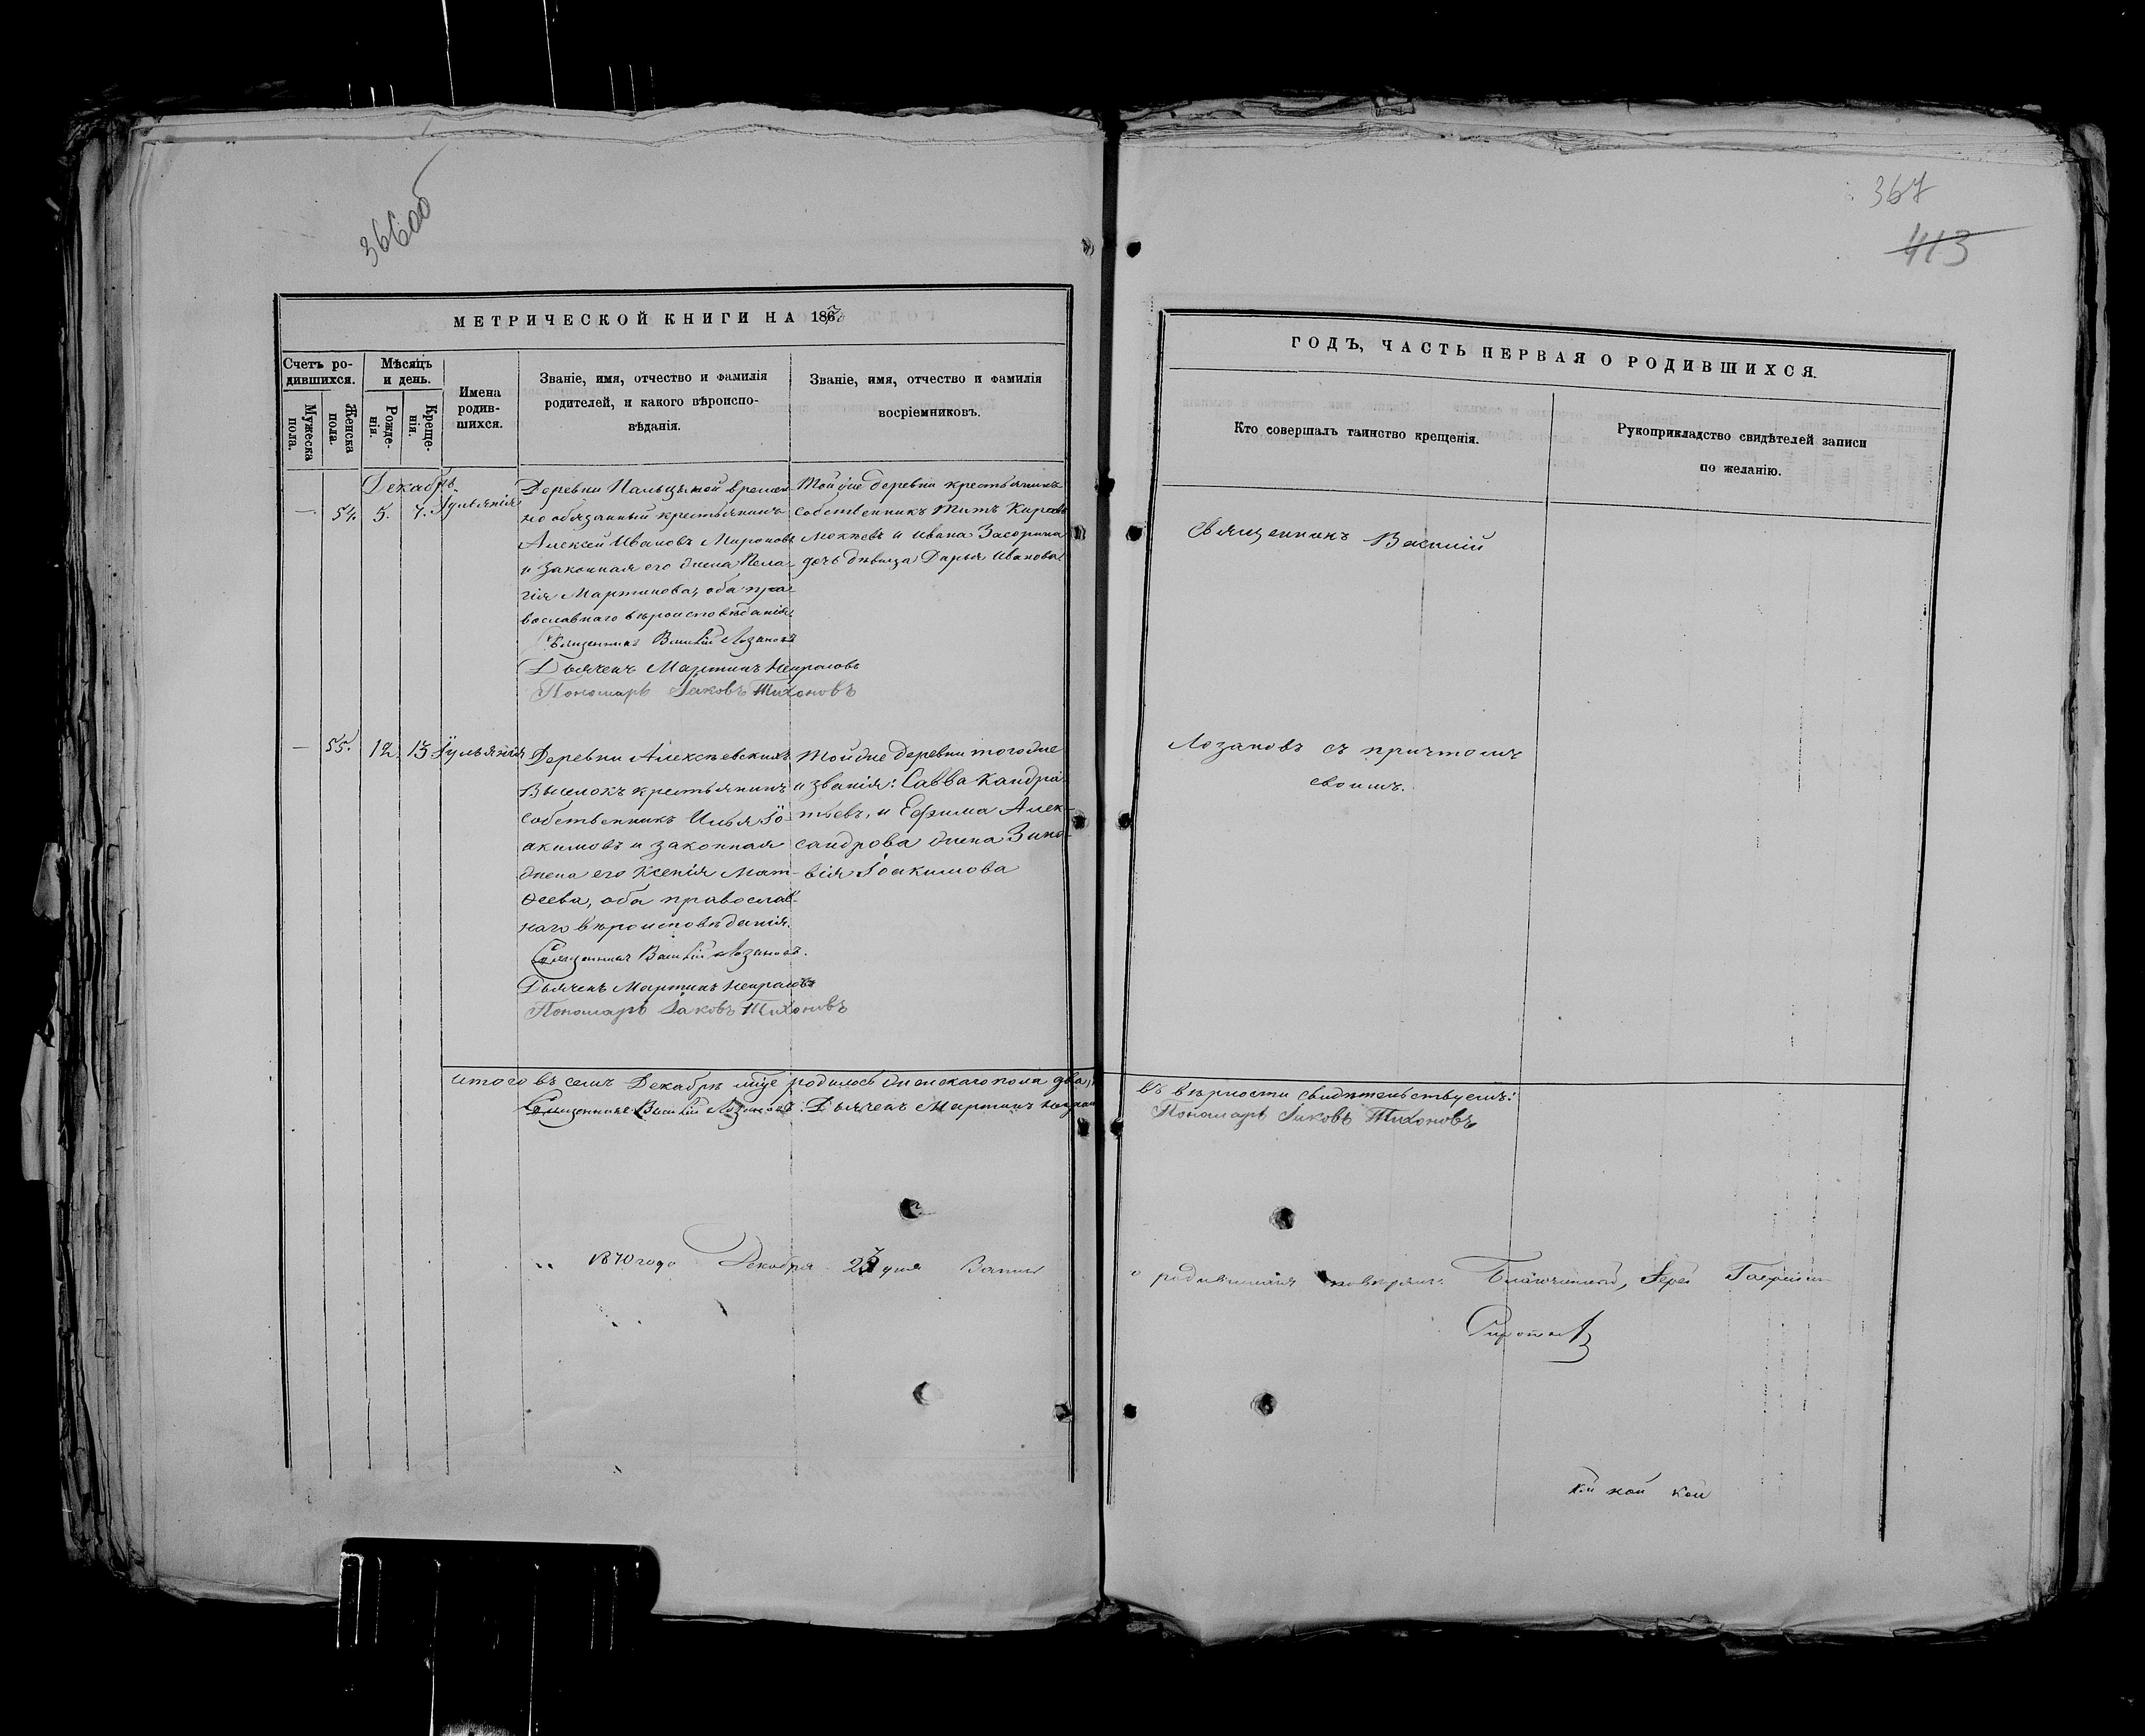 366об
367
413
МЕТРИЧЕСКОЙ КНИГИ НА 1870
ГОДЪ, ЧАСТЬ ПЕРВАЯ О РОДИВШИХСЯ.
Счетъ ро-
дившихся.
Мужеска
пола.
Женска
пола.
Мѣсяцъ
и день.
Рожде-
нія.
Креще-
нія.
Имена
родив-
шихся.
Званіе, имя, отчество и фамилія
родителей, и какого вѣроиспо-
вѣданія.
Званіе, имя, отчество и фамилія
воспріемниковъ.
Кто совершалъ таинство крещенія.
Рукоприкладство свидѣтелей записи
по желанію.
Декабрь
— 54. 5. 7. Іуліянія
Деревни времен-
но обязанный крестьянинъ
Алексей Ивановъ Мироновъ
и законная его жена Пела-
гія Мартинова, оба пра-
вославнаго вѣроисповѣданія.
Священникъ Василій Лозановъ
Дьячекъ Мартинъ Некрасовъ
Пономарь Іаковъ Тихоновъ
Той же деревни крестьянинъ
собственникъ Титъ
и Ивана
дочь девица Дарья Иванова
Священникъ Василій
— 55. 12. 13 Іульянія
Деревни Алексѣевскихъ
Выселокъ крестьянинъ
собственникъ Илья Іо-
акимовъ и законная
жена его Ксенія Мат-
ѳеева, оба православ-
наго вѣроисповѣданія.
Священникъ Василій Лозановъ.
Дьячекъ Мартинъ Некрасовъ
Пономарь Іаковъ Тихоновъ
Той же деревни того же
и званія: Савва Кандра-
тьевъ, и Ефима Алек-
сандрова жена Зино-
вія Іоакимова
Лозановъ съ причтомъ
своимъ.
Итого въ семъ Декабрѣ мцѣ родилось женскаго пола два,
въ вѣрности свидѣтельствуемъ:
Священникъ Василій Лозановъ. Дьячекъ Мартинъ
Пономарь Іаковъ Тихоновъ
1870 года Декабря 23 дня
о родившихся Благочинный, Іерей
кой кои